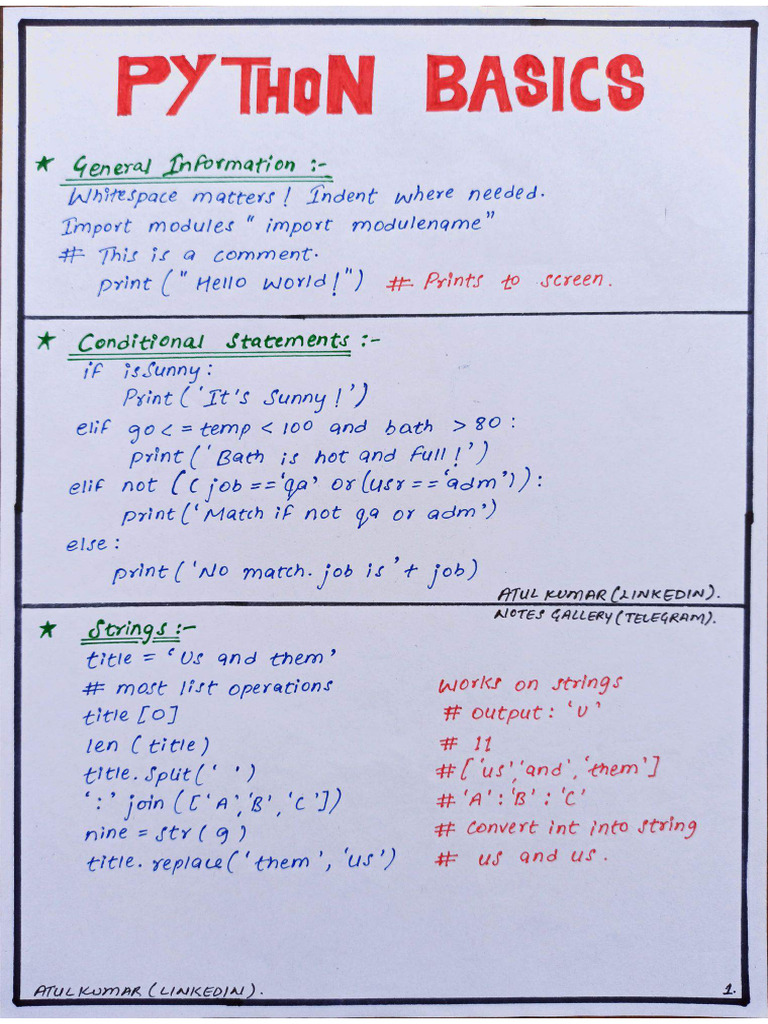 PYTHON BASICS
★ General Information :-
Whitespace matters! Indent where needed.
Import modules " import modulename"
# This is a comment.
print ("Hello World!") # Prints to screen.
★ Conditional Statements :-
if isSunny:
Print('It's Sunny!')
elif 90 <= temp < 100 and bath > 80 :
print('Bath is hot and full!')
elif not ((job == 'qa' or (usr == 'adm')) :
print('Match if not qa or adm')
else:
print('No match. job is '+ job)
ATUL KUMAR (LINKEDIN).
NOTES GALLERY (TELEGRAM).
★ Strings :-
title = 'Us and them'
# most list operations works on strings
title [0] # output: 'U'
len (title) # 11
title.split(' ') # ['us','and','them']
':' join (['A','B','C']) # 'A':'B':'C'
nine = str(9) # convert int into string
title. replace('them', 'us') # us and us.
ATUL KUMAR (LINKEDIN).
1.